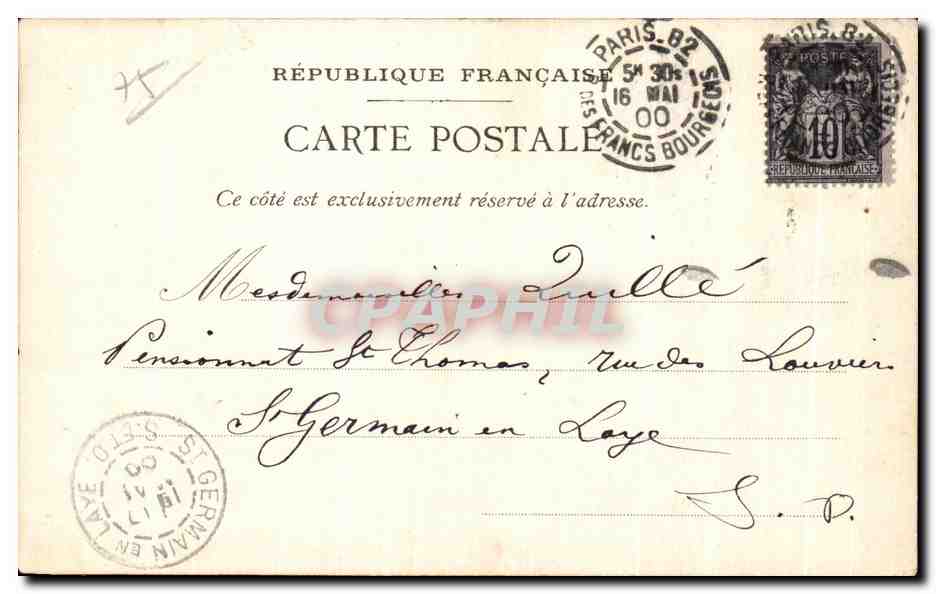 75
RÉPUBLIQUE FRANÇAISE
CARTE POSTALE
Ce côté est exclusivement réservé à l'adresse.
PARIS_82
5H 30S
16 MAI
00
R. DES FRANCS BOURGEOIS
POSTES
10
REPUBLIQUE FRANCAISE
Mesdemoiselles Quillé
CPAPHIL
Pensionnat St Thomas, rue des Louviers
St Germain en Laye
S. O.
ST GERMAIN EN LAYE
S. ET O.
17
MAI
00